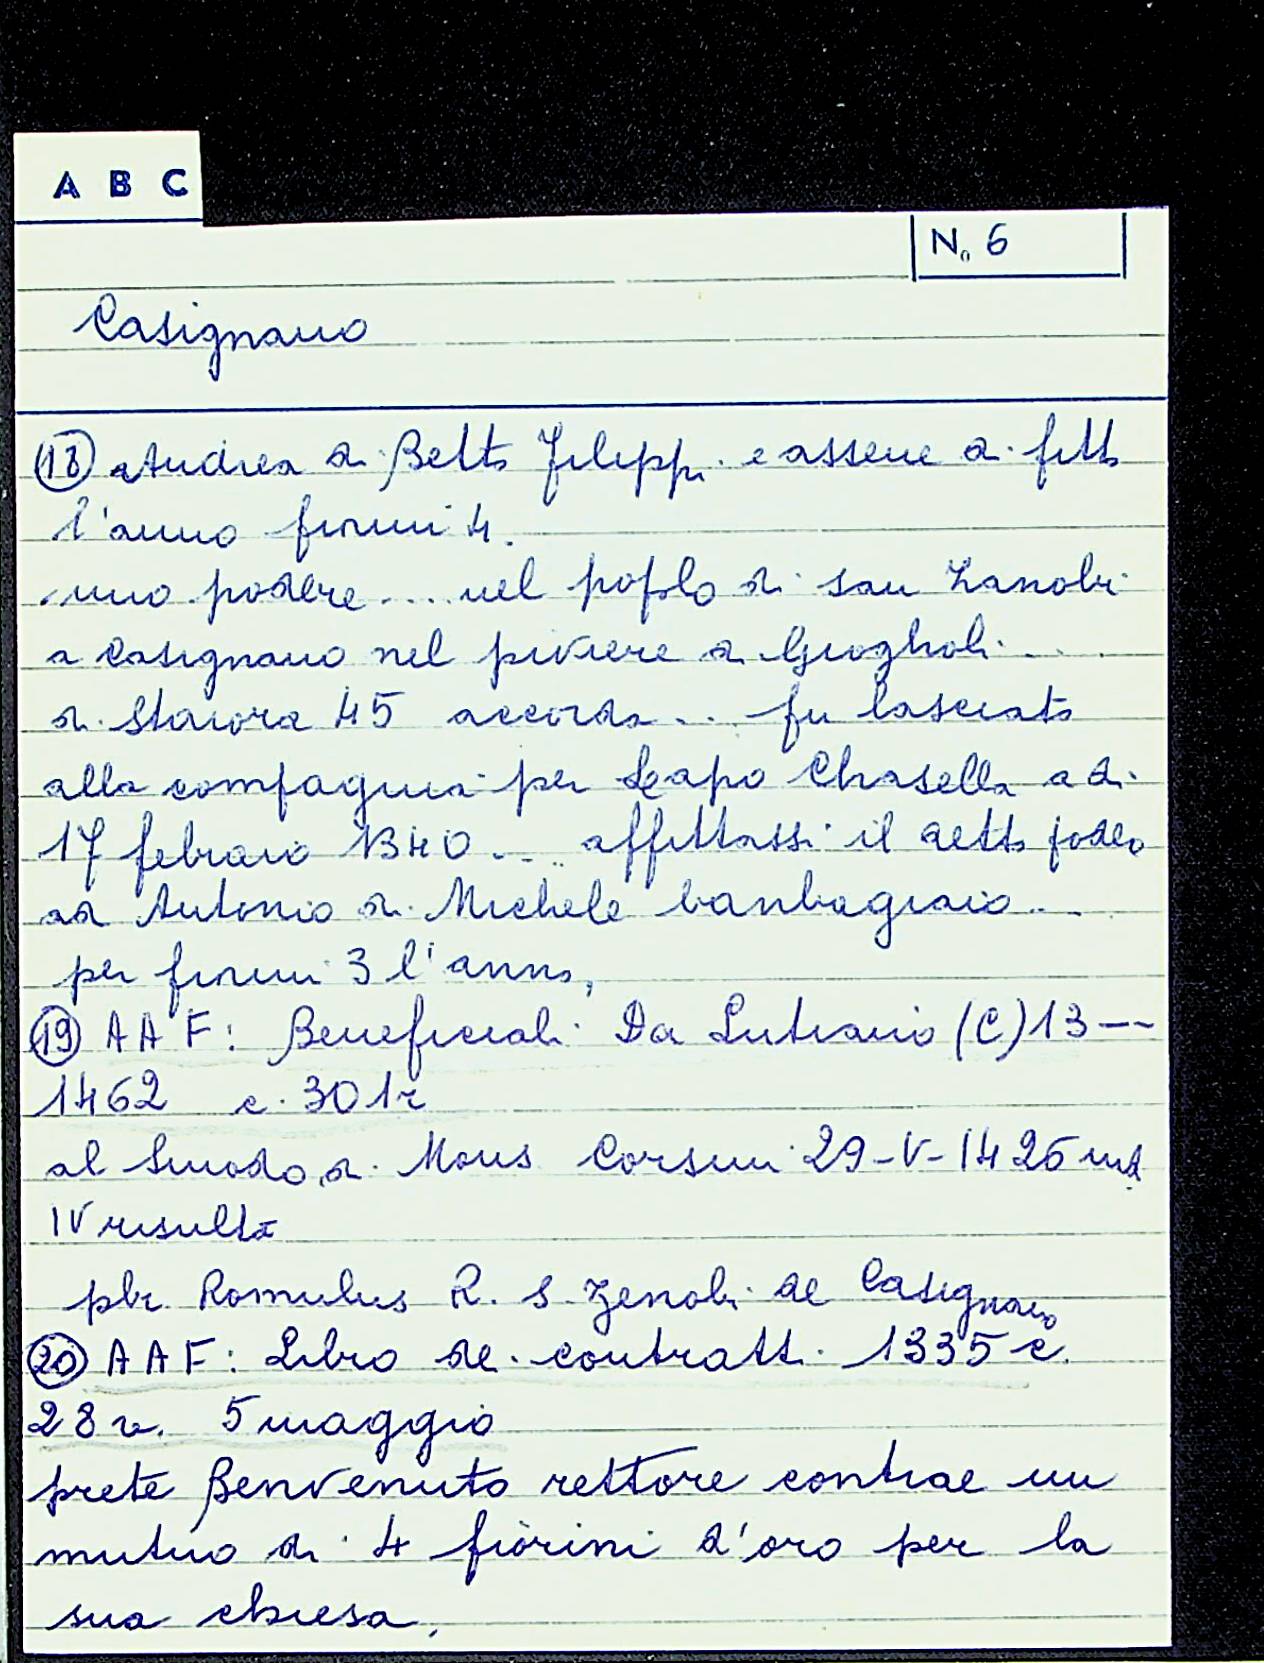 A B C
N. 6
Casignano
(18) Andrea di Betto Filippi e assene di fitto
l'anno fiorini 4.
uno podere .... nel popolo di san Zanobi
a Casignano nel piviere di Giogholi ....
di staiora 45 accorda ... fu lasciato
alla compagnia per Lapo Chasella a di
17 febraio 1340 .... affittassi il detto podere
ad Antonio di Michele banbagiaio ...
per fiorini 3 l'anno,
(19) A A F: Beneficiali Da Lutiano (C) 13 --
1462 c. 301r
al Sinodo di Mons Corsini 29-V-1426 ind
IV risulta
pbr. Romulus R. S. Zenobi de Casignano
(20) A A F: Libro dei contratti 1335 c.
28 r. 5 maggio
prete Benvenuto rettore contrae un
mutuo di 4 fiorini d'oro per la
sua chiesa,